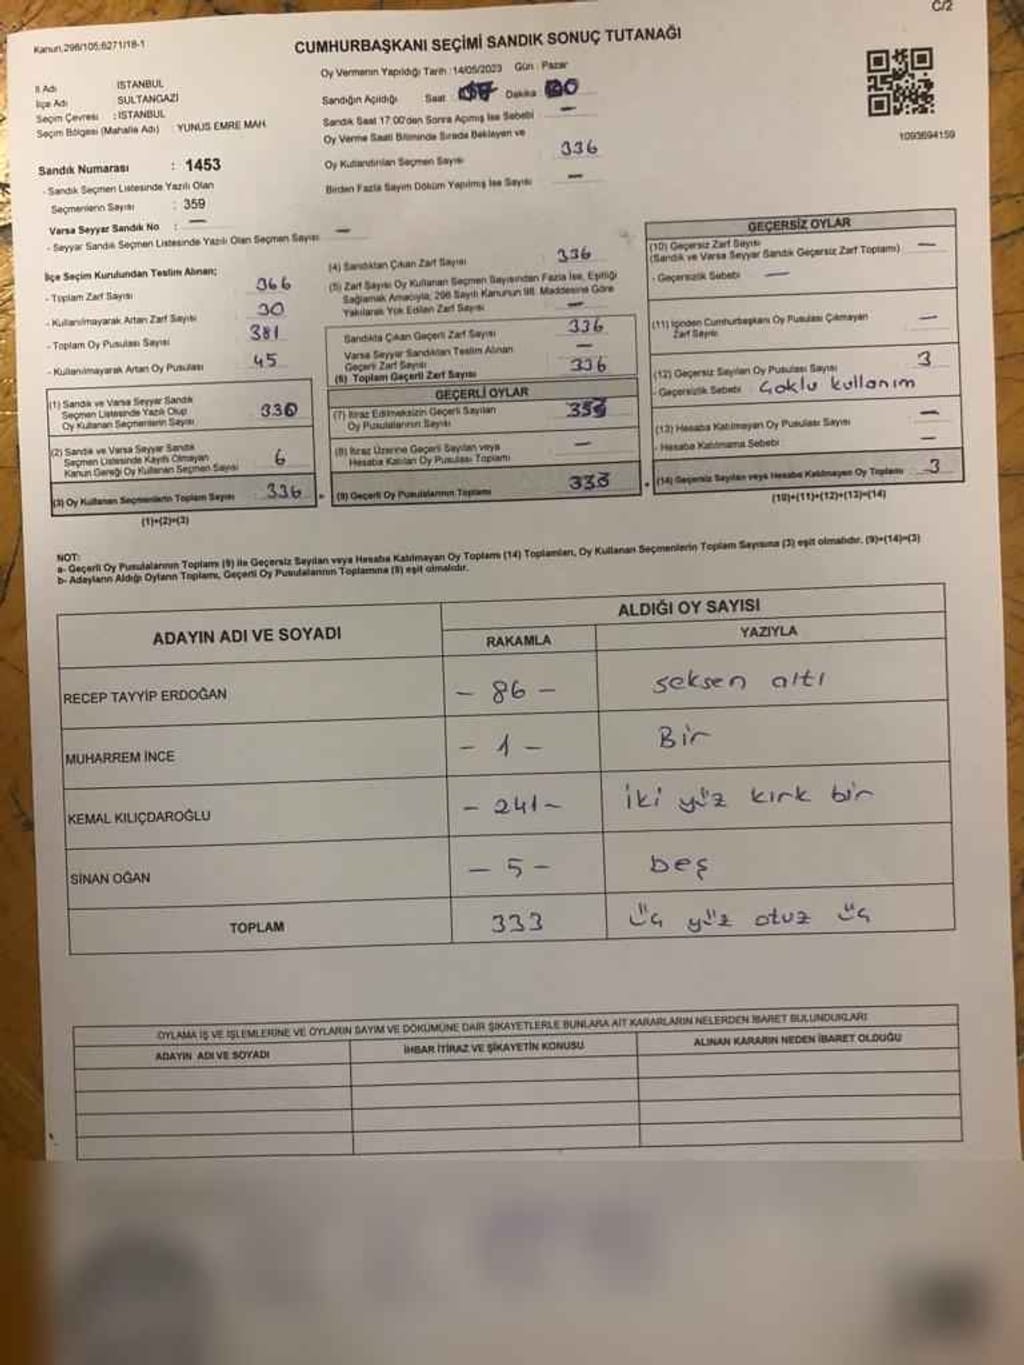 C/2
Kanun,298/105;6271/18-1
CUMHURBAŞKANI SEÇİMİ SANDIK SONUÇ TUTANAĞI
İl Adı İSTANBUL
İlçe Adı SULTANGAZİ
Seçim Çevresi : İSTANBUL
Seçim Bölgesi (Mahalle Adı) : YUNUS EMRE MAH.
Oy Vermenin Yapıldığı Tarih : 14/05/2023 Gün : Pazar
Sandığın Açıldığı Saat Dakika
Sandık Saat 17:00'den Sonra Açımış İse Sebebi —
Oy Verme Saati Bitiminde Sırada Bekleyen ve
Oy Kullandırılan Seçmen Sayısı 336
Birden Fazla Sayım Döküm Yapılmış İse Sayısı —
1093694159
Sandık Numarası : 1453
- Sandık Seçmen Listesinde Yazılı Olan
Seçmenlerin Sayısı : 359
Varsa Seyyar Sandık No : —
- Seyyar Sandık Seçmen Listesinde Yazılı Olan Seçmen Sayısı —
İlçe Seçim Kurulundan Teslim Alınan;
- Toplam Zarf Sayısı 366
- Kullanılmayarak Artan Zarf Sayısı 30
- Toplam Oy Pusulası Sayısı 381
- Kullanılmayarak Artan Oy Pusulası 45
(1) Sandık ve Varsa Seyyar Sandık
Seçmen Listesinde Yazılı Olup
Oy Kullanan Seçmenlerin Sayısı 330
(2) Sandık ve Varsa Seyyar Sandık
Seçmen Listesinde Kayıtlı Olmayan
Kanun Gereği Oy Kullanan Seçmen Sayısı 6
(3) Oy Kullanan Seçmenlerin Toplam Sayısı 336
(1)+(2)=(3)
(4) Sandıktan Çıkan Zarf Sayısı 336
(5) Zarf Sayısı Oy Kullanan Seçmen Sayısından Fazla İse, Eşitliği
Sağlamak Amacıyla, 298 Sayılı Kanunun 98. Maddesine Göre
Yakılarak Yok Edilen Zarf Sayısı —
Sandıkta Çıkan Geçerli Zarf Sayısı 336
Varsa Seyyar Sandıktan Teslim Alınan
Geçerli Zarf Sayısı —
(6) Toplam Geçerli Zarf Sayısı 336
GEÇERLİ OYLAR
(7) İtiraz Edilmeksizin Geçerli Sayılan
Oy Pusulalarının Sayısı
(8) İtiraz Üzerine Geçerli Sayılan veya
Hesaba Katılan Oy Pusulası Toplamı —
= (9) Geçerli Oy Pusulalarının Toplamı 333
GEÇERSİZ OYLAR
(10) Geçersiz Zarf Sayısı
(Sandık ve Varsa Seyyar Sandık Geçersiz Zarf Toplamı) —
- Geçersizlik Sebebi —
(11) İçinden Cumhurbaşkanı Oy Pusulası Çıkmayan
Zarf Sayısı —
(12) Geçersiz Sayılan Oy Pusulası Sayısı 3
- Geçersizlik Sebebi Çoklu kullanım
(13) Hesaba Katılmayan Oy Pusulası Sayısı —
- Hesaba Katılmama Sebebi —
+ (14) Geçersiz Sayılan veya Hesaba Katılmayan Oy Toplamı 3
(10)+(11)+(12)+(13)=(14)
NOT:
a- Geçerli Oy Pusulalarının Toplamı (9) ile Geçersiz Sayılan veya Hesaba Katılmayan Oy Toplamı (14) Toplamları, Oy Kullanan Seçmenlerin Toplam Sayısına (3) eşit olmalıdır. (9)+(14)=(3)
b- Adayların Aldığı Oyların Toplamı, Geçerli Oy Pusulalarının Toplamına (9) eşit olmalıdır.
ADAYIN ADI VE SOYADI ALDIĞI OY SAYISI
RAKAMLA YAZIYLA
RECEP TAYYİP ERDOĞAN - 86 - seksen altı
MUHARREM İNCE - 1 - Bir
KEMAL KILIÇDAROĞLU - 241 - iki yüz kırk bir
SİNAN OĞAN - 5 - beş
TOPLAM 333 üç yüz otuz üç
OYLAMA İŞ VE İŞLEMLERİNE VE OYLARIN SAYIM VE DÖKÜMÜNE DAİR ŞİKAYETLERLE BUNLARA AİT KARARLARIN NELERDEN İBARET BULUNDUKLARI
ADAYIN ADI VE SOYADI İHBAR İTİRAZ VE ŞİKAYETİN KONUSU ALINAN KARARIN NEDEN İBARET OLDUĞU